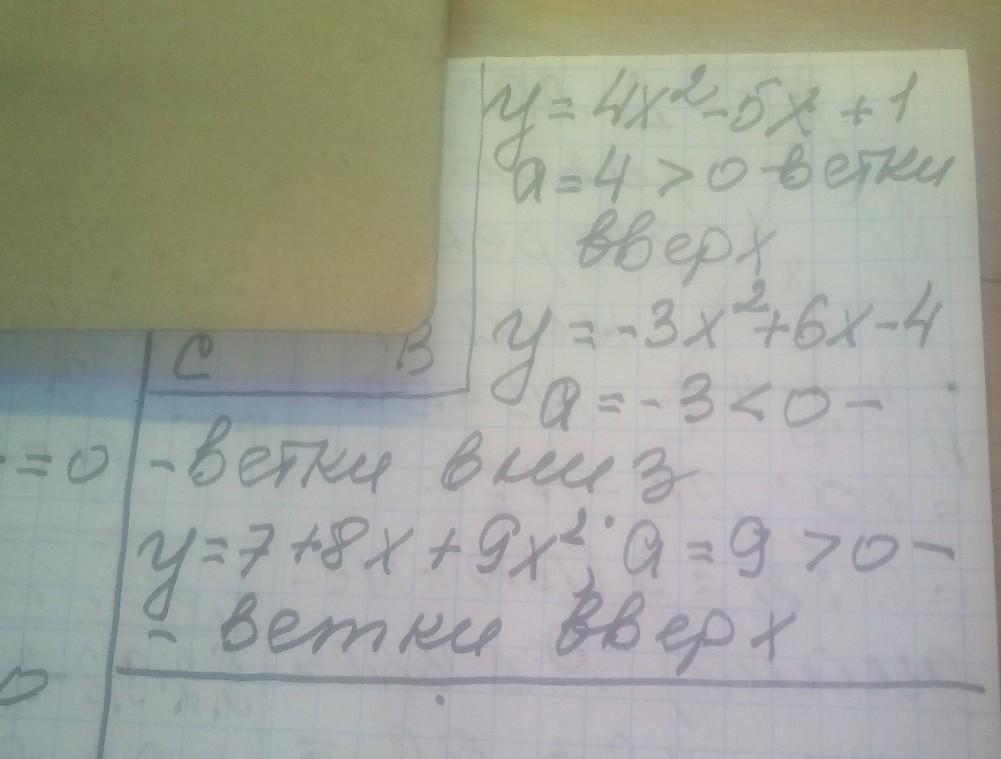 y = 4x² - 5x + 1
a = 4 > 0 - ветки
вверх
y = -3x² + 6x - 4
С В
a = -3 < 0 -
= 0
- ветки вниз
y = 7 + 8x + 9x²; a = 9 > 0 -
- ветки вверх
0